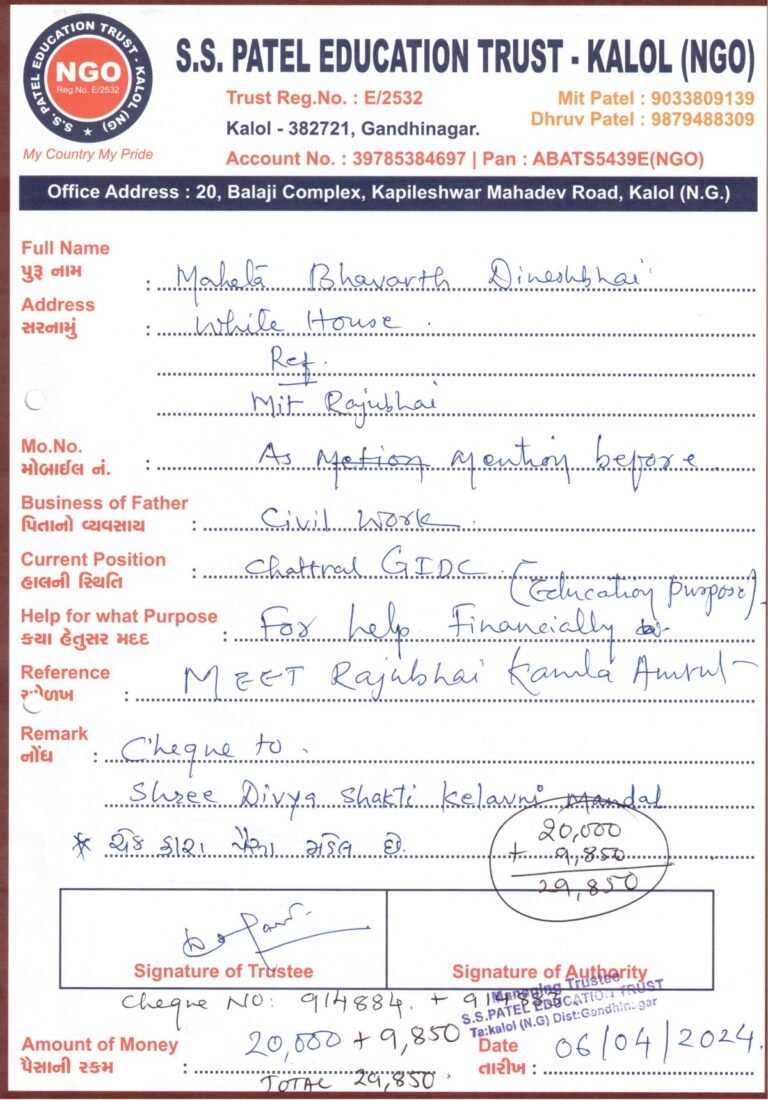 S.S. PATEL EDUCATION TRUST - KALOL (NG)
NGO
Reg.No. E/2532
My Country My Pride
S.S. PATEL EDUCATION TRUST - KALOL (NGO)
Trust Reg.No. : E/2532
Mit Patel : 9033809139
Kalol - 382721, Gandhinagar.
Dhruv Patel : 9879488309
Account No. : 39785384697 | Pan : ABATS5439E(NGO)
Office Address : 20, Balaji Complex, Kapileshwar Mahadev Road, Kalol (N.G.)
Full Name
પુરૂ નામ : Mahetā Bhavarth Dineshbhai
Address
સરનામું : White House.
Ref.
Mit Rajubhai
Mo.No.
મોબાઈલ નં. : As metion mention before.
Business of Father
પિતાનો વ્યવસાય : Civil Work
Current Position
હાલની સ્થિતિ : Chattral GIDC.
(Education purpose)
Help for what Purpose
કયા હેતુસર મદદ : For help Financially
Reference
: MEET Rajubhai Kamla Amrut
Remark
નોંધ : Cheque to.
Shree Divya Shakti Kelavni Mandal
* ચેક દ્વારા પૈસા મળેલ છે.
20,000
+ 9,850
29,850
Signature of Trustee
Signature of Authority
Managing Trustee
S.S.PATEL EDUCATION TRUST
Ta:kalol (N.G) Dist:Gandhinagar
Cheque NO: 914884. + 914883.
Amount of Money
પૈસાની રકમ : 20,000 + 9,850
TOTAL 29,850.
Date
તારીખ : 06/04/2024.